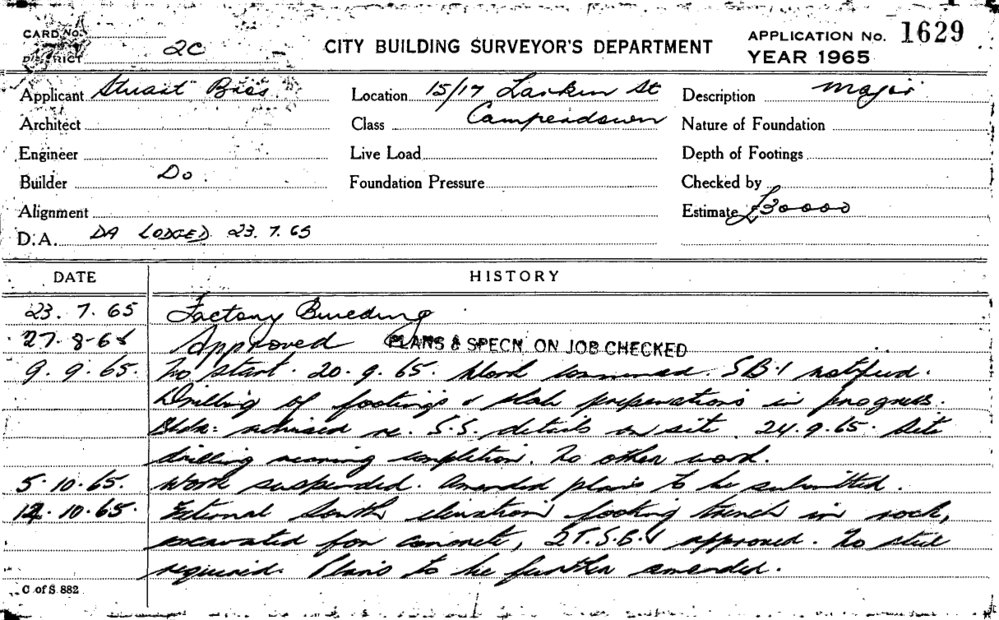 CARD No.
DISTRICT 2C
CITY BUILDING SURVEYOR'S DEPARTMENT
APPLICATION No. 1629
YEAR 1965
Applicant Stuart Bros
Location 15/17 Larkin St
Description Major
Architect
Class Camperdown
Nature of Foundation
Engineer
Live Load
Depth of Footings
Builder Do.
Foundation Pressure
Checked by
Alignment
Estimate £30000
D.A. DA LODGED 23.7.65
DATE HISTORY
23.7.65 Factory Building
27-8-65 Approved PLANS & SPECN ON JOB CHECKED
9.9.65. No start. 20.9.65. Work commenced. S.B.1 notified.
Drilling of footings & slab preparations in progress.
Bldr: advised re. S.S. details on site. 24.9.65. Site
drilling nearing completion. No other work.
5.10.65. Work suspended. Amended plans to be submitted.
12.10.65. External South elevation footing trench in rock,
excavated for concrete, approved. No steel
required. Plans to be further amended.
C of S. 882